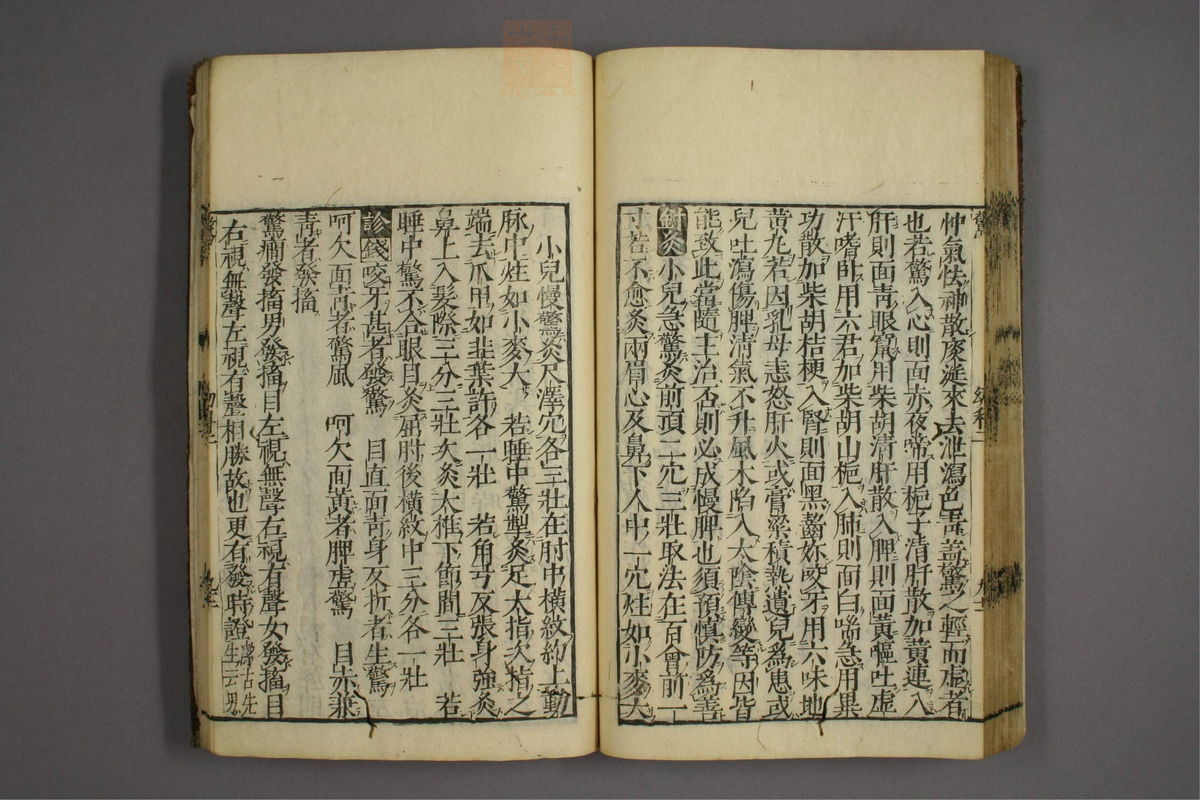 忡氣怯神散痰涎來去泄瀉色青蓋驚之輕而虛者
也若驚入心則面赤夜啼用梔子清肝散加黃連入
肝則面青眼竄用柴胡清肝散入脾則面黃嘔吐虛
汗嗜卧用六君加柴胡山梔入肺則面白喘急用異
功散加柴胡桔梗入腎則面黑齧妳咬牙用六味地
黃丸若因乳母恚怒肝火或膏粱積熱遺兒為患或
兒吐瀉傷脾清氣不升風木陷入太陰傳變等因皆
能致此當隨主治否則必成慢脾也須預慎防為善
針灸小兒急驚灸前頂二穴三壯取法在百會前一
寸若不愈灸兩眉心及鼻下人中一穴炷如小麥大
小兒慢驚灸尺澤穴各三壯在肘中橫紋約上動
脉中炷如小麥大 若睡中驚掣灸足大指次指之
端去爪甲如韭葉許各一壯 若角弓反張身強灸
鼻上入髮際三分三壯次灸大椎下節間三壯 若
睡中驚不合眼目灸屈肘後橫紋中三分各一壯
診錢咬牙甚者發驚 目直面青身反折者生驚
呵欠面青者驚風 呵欠面黃者脾虛驚 目赤兼
青者發搐
驚癇發搐男發搐目左視無聲右視有聲女發搐目
右視無聲左視有聲相勝故也更有發時證
生云男